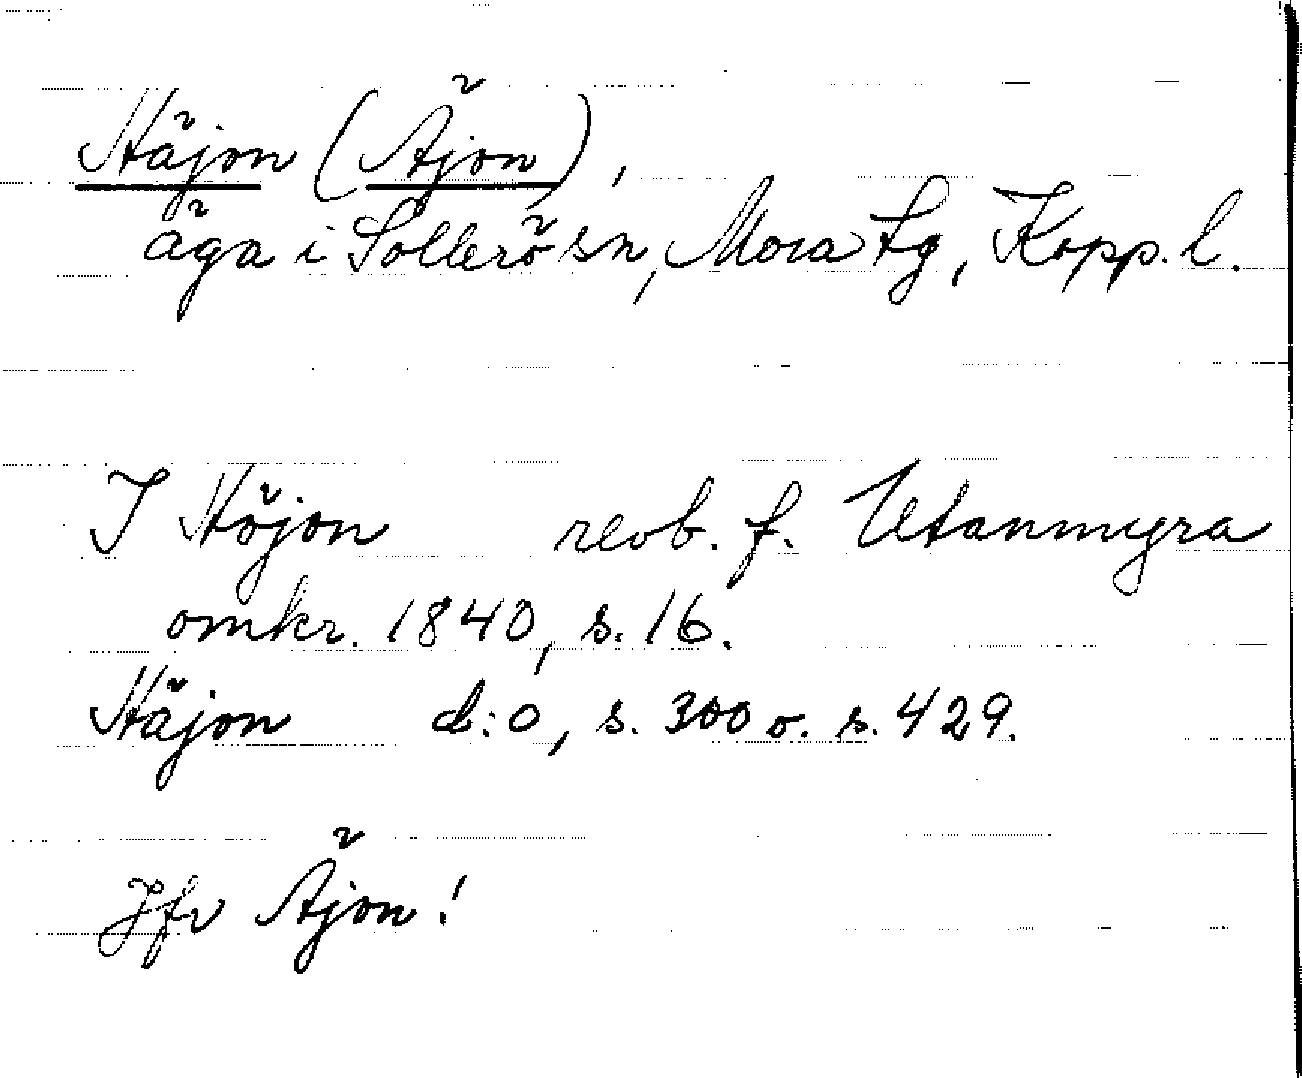 Häjon (Äjon),
äga i Sollerö sn, Mora tg, Kopp. l.
I Höjon revb. f. Utanmyra
omkr. 1840, s. 16.
Häjon d:o, s. 300 o. s. 429.
Jfr Äjon!